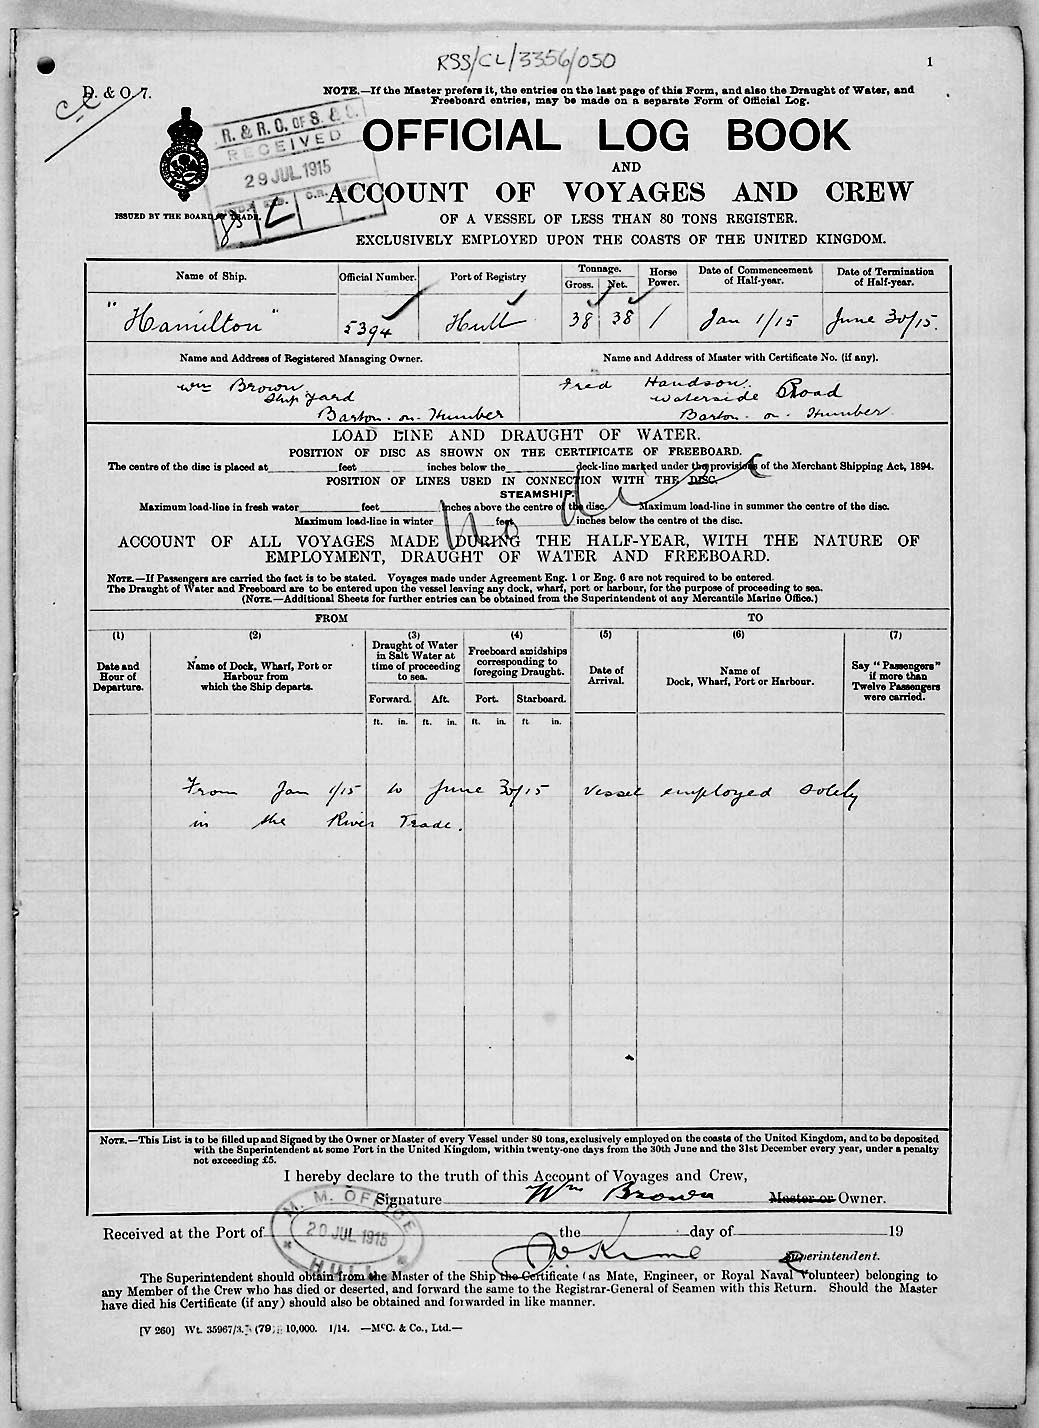 RSS/CL/3356/050
1
D. & O. 7.
NOTE.—If the Master prefers it, the entries on the last page of this Form, and also the Draught of Water, and
Freeboard entries, may be made on a separate Form of Official Log.
R. & R. G. OF S. & S.
RECEIVED
29 JUL 1915
OFFICIAL LOG BOOK
AND
ACCOUNT OF VOYAGES AND CREW
ISSUED BY THE BOARD OF TRADE.
OF A VESSEL OF LESS THAN 80 TONS REGISTER.
EXCLUSIVELY EMPLOYED UPON THE COASTS OF THE UNITED KINGDOM.
Name of Ship. Official Number. Port of Registry Tonnage. Gross. Net. Horse Power. Date of Commencement of Half-year. Date of Termination of Half-year.
"Hamilton" 5394 Hull 38 38 / Jan 1/15 June 30/15.
Name and Address of Registered Managing Owner. Name and Address of Master with Certificate No. (if any).
Wm Brown Fred Handson.
Ship Yard Waterside Road
Barton-on-Humber Barton-on-Humber.
LOAD LINE AND DRAUGHT OF WATER.
POSITION OF DISC AS SHOWN ON THE CERTIFICATE OF FREEBOARD.
The centre of the disc is placed at feet inches below the deck-line marked under the provisions of the Merchant Shipping Act, 1894.
POSITION OF LINES USED IN CONNECTION WITH THE DISC.
STEAMSHIP.
Maximum load-line in fresh water feet inches above the centre of the disc. Maximum load-line in summer the centre of the disc.
Maximum load-line in winter feet inches below the centre of the disc.
No disc
ACCOUNT OF ALL VOYAGES MADE DURING THE HALF-YEAR, WITH THE NATURE OF
EMPLOYMENT, DRAUGHT OF WATER AND FREEBOARD.
NOTE.—If Passengers are carried the fact is to be stated. Voyages made under Agreement Eng. 1 or Eng. 6 are not required to be entered.
The Draught of Water and Freeboard are to be entered upon the vessel leaving any dock, wharf, port or harbour, for the purpose of proceeding to sea.
(NOTE.—Additional Sheets for further entries can be obtained from the Superintendent of any Mercantile Marine Office.)
FROM TO
(1) (2) (3) (4) (5) (6) (7)
Date and Hour of Departure. Name of Dock, Wharf, Port or Harbour from which the Ship departs. Draught of Water in Salt Water at time of proceeding to sea. Freeboard amidships corresponding to foregoing Draught. Date of Arrival. Name of Dock, Wharf, Port or Harbour. Say "Passengers" if more than Twelve Passengers were carried.
Forward. Aft. Port. Starboard.
ft. in. ft. in. ft. in. ft in.
From Jan 1/15 to June 30/15 Vessel employed solely
in the River Trade.
NOTE.—This List is to be filled up and Signed by the Owner or Master of every Vessel under 80 tons, exclusively employed on the coasts of the United Kingdom, and to be deposited
with the Superintendent at some Port in the United Kingdom, within twenty-one days from the 30th June and the 31st December every year, under a penalty
not exceeding £5.
I hereby declare to the truth of this Account of Voyages and Crew,
Signature Wm Brown Master or Owner.
M. M. OFFICE
20 JUL 1915
HULL
Received at the Port of the day of 19
Superintendent.
The Superintendent should obtain from the Master of the Ship the Certificate (as Mate, Engineer, or Royal Naval Volunteer) belonging to
any Member of the Crew who has died or deserted, and forward the same to the Registrar-General of Seamen with this Return. Should the Master
have died his Certificate (if any) should also be obtained and forwarded in like manner.
[V 260] Wt. 35967/3. (79) 10,000. 1/14. —McC. & Co., Ltd.—